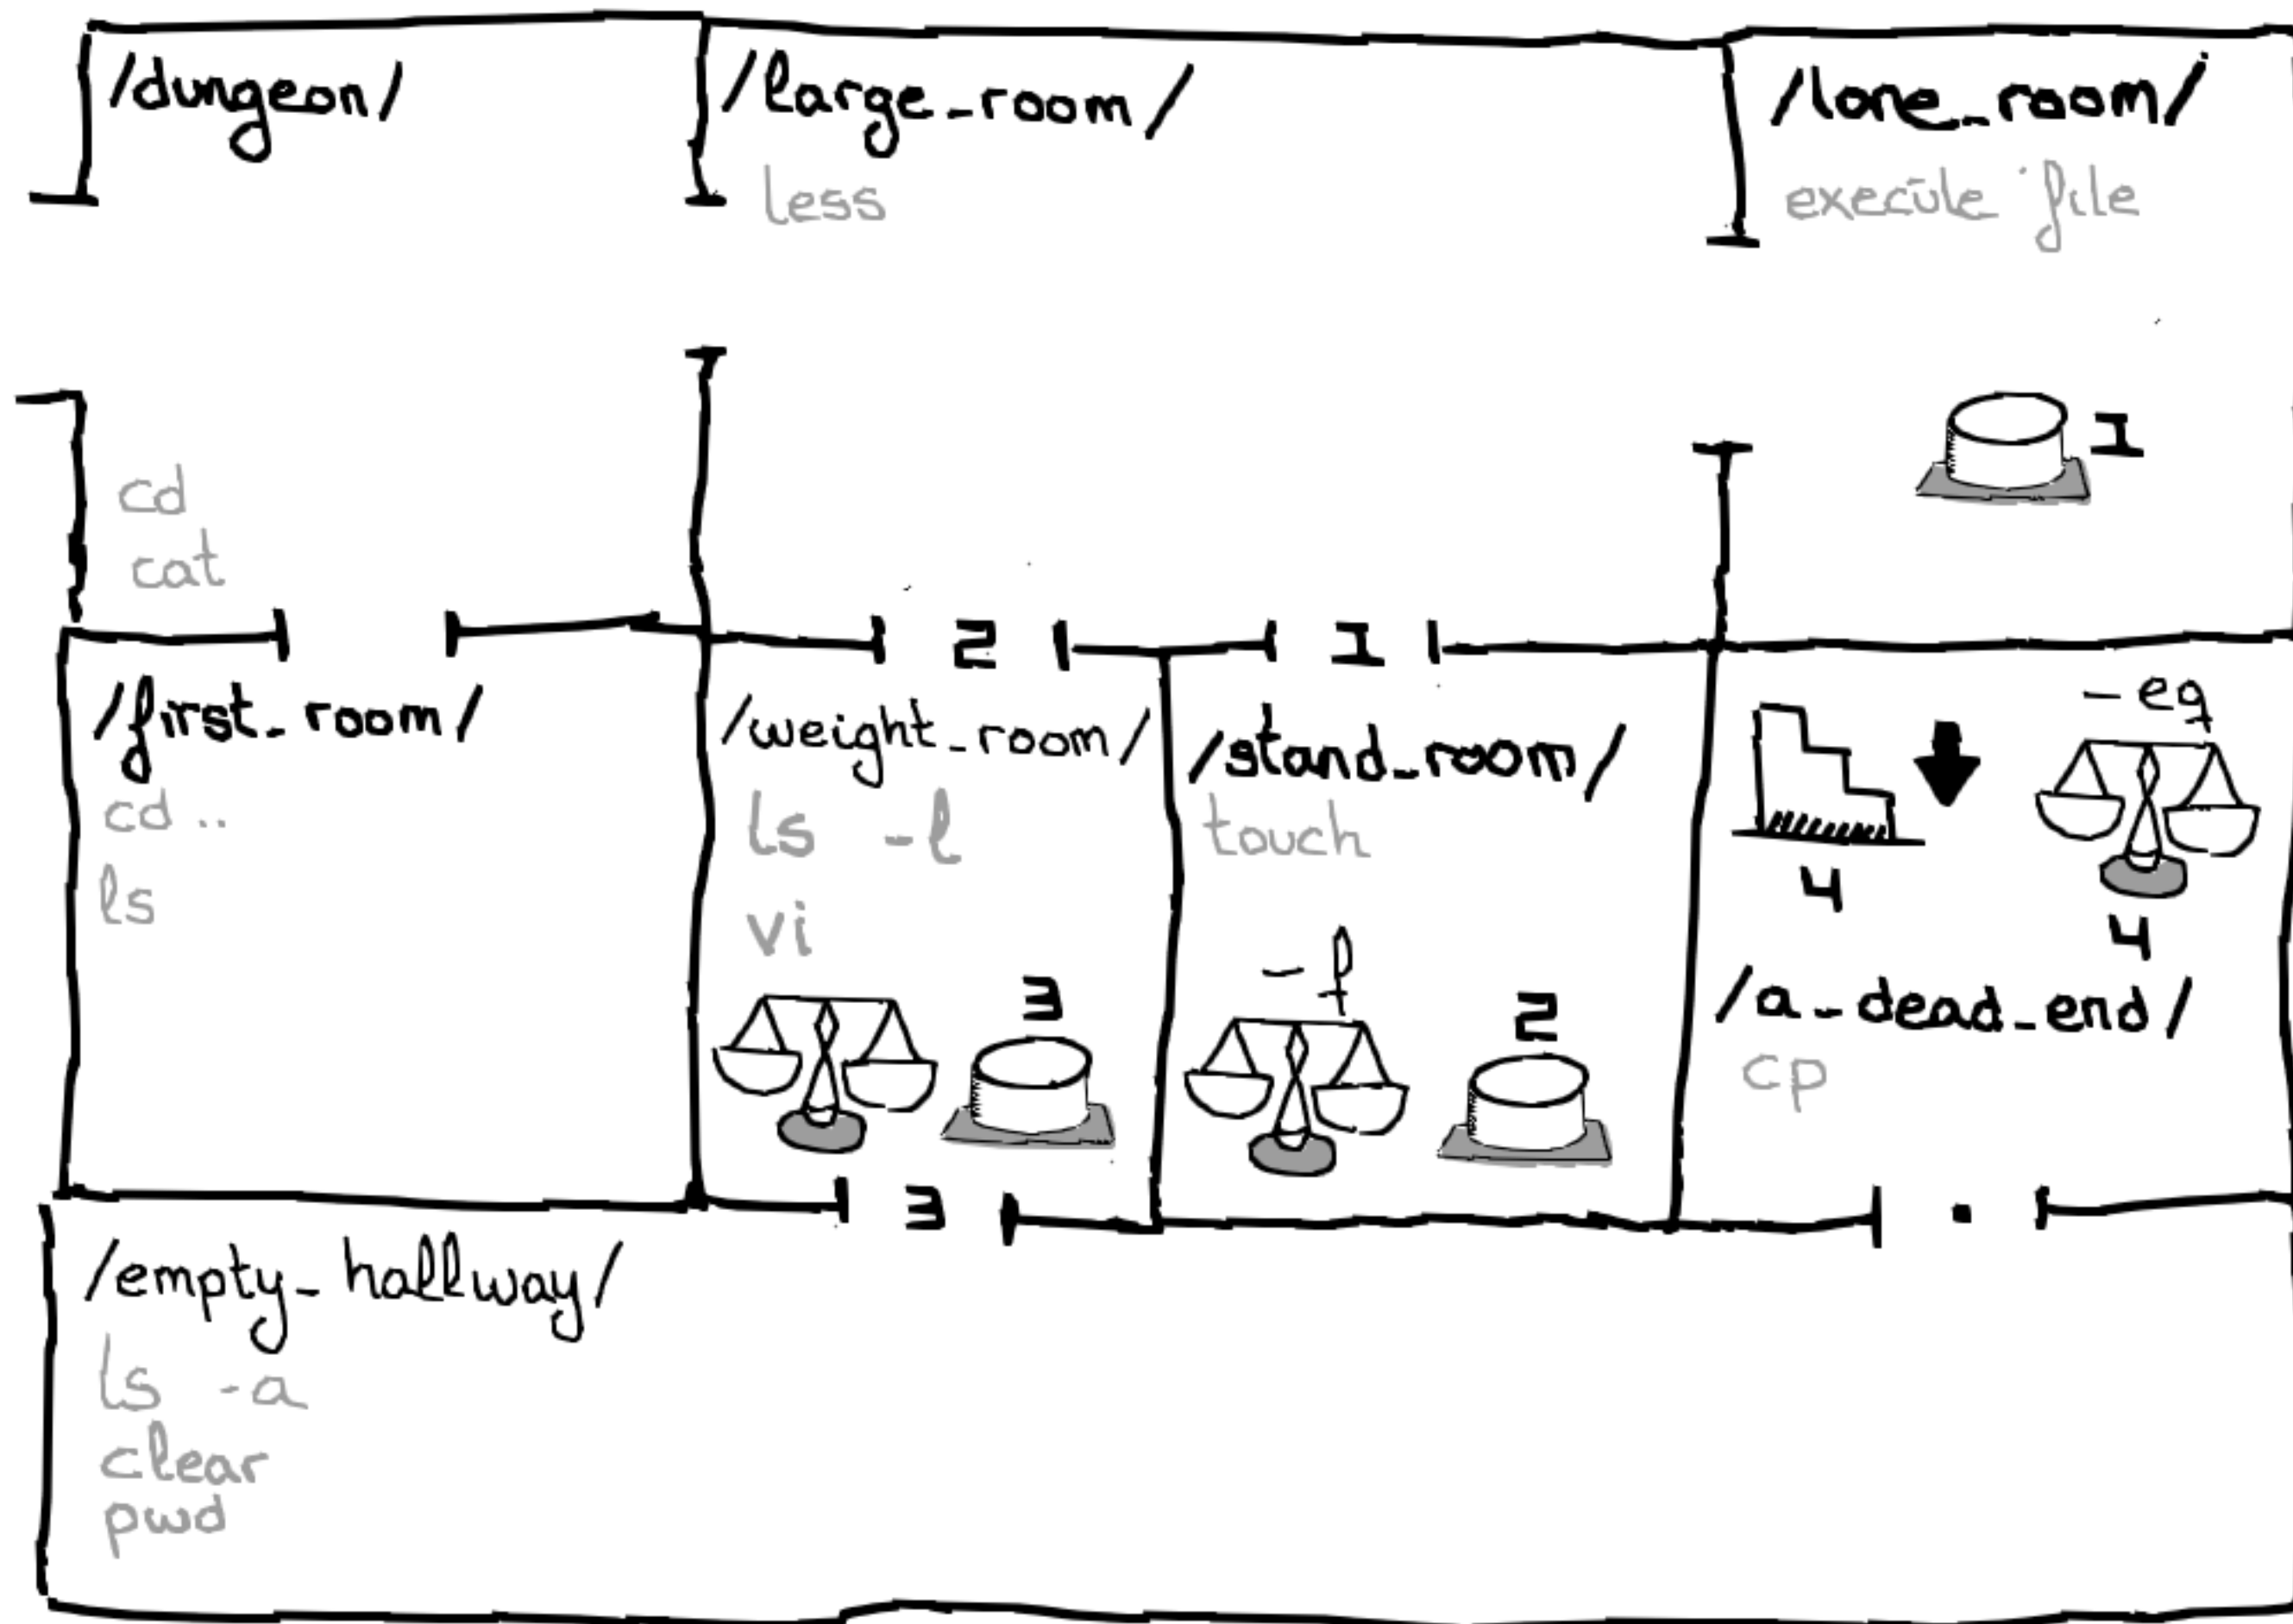 /dungeon/
cd
cat
/large_room/
less
/lone_room/
execute file
1
2
1
/first_room/
cd ..
ls
/weight_room/
ls -l
vi
3
3
/stand_room/
touch
-f
2
-eq
4
4
/a_dead_end/
cp
.
/empty_hallway/
ls -a
clear
pwd